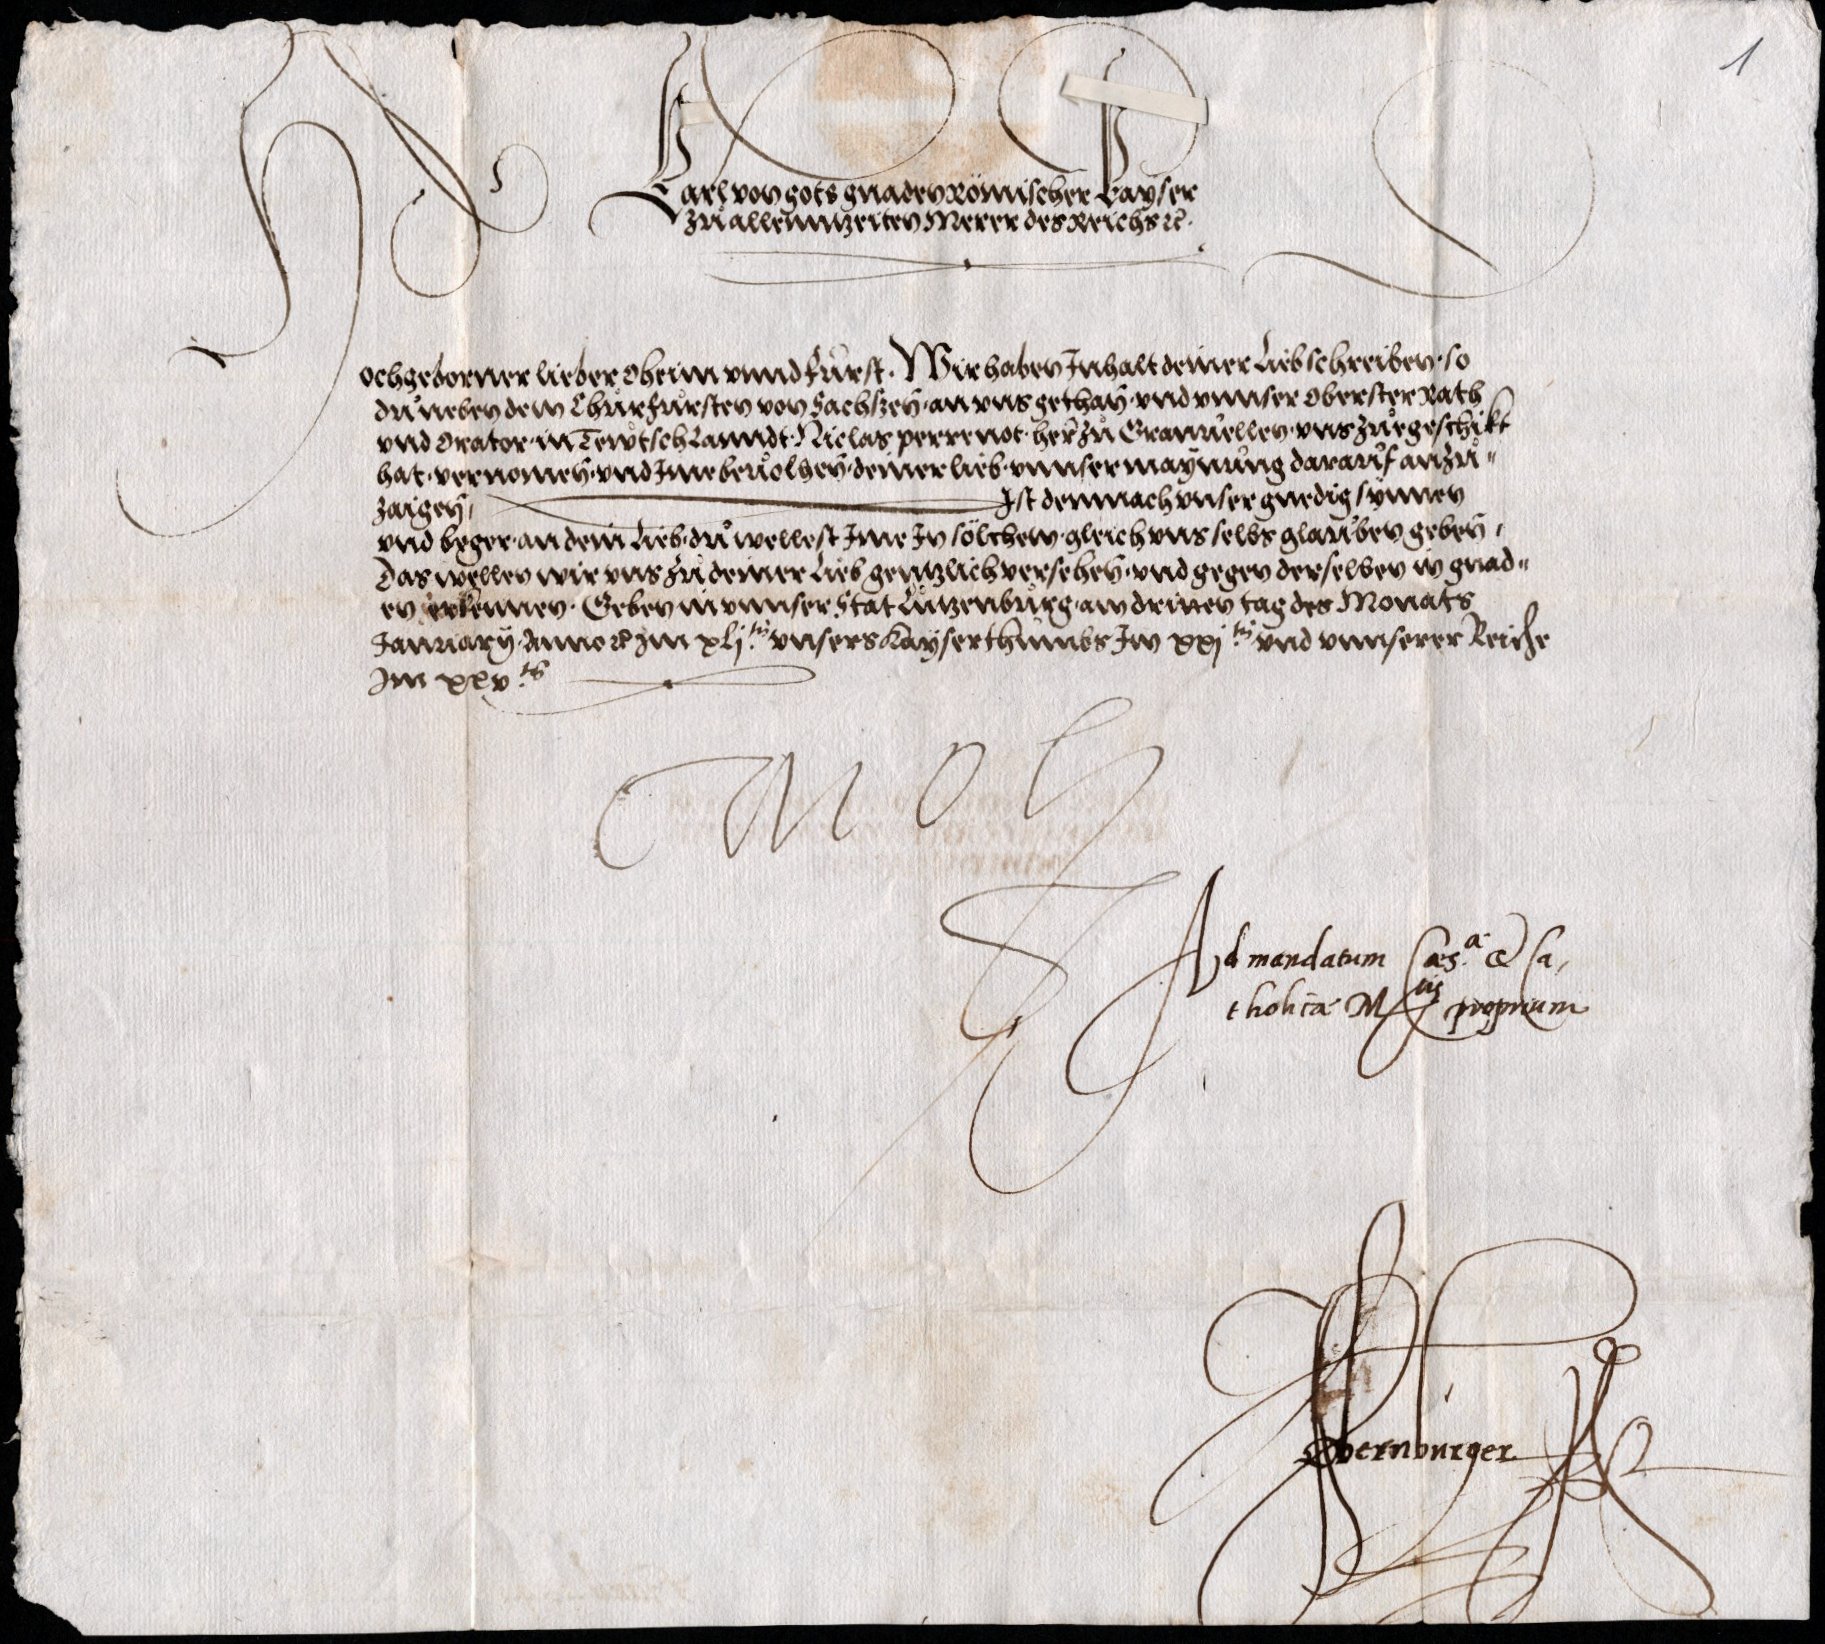 1
Carl von gots gnaden Römischer Kayser
zů allenntzeiten Merer des Reichs ꝛc.
Hochgeborner lieber Oheim vnnd Fůrst. Wir haben Inhalt deiner Lieb schreiben, so
dů neben dem Chůrfůrsten von Sachszen, an vns gethan, vnd vnnser Oberster Rath
vnd Orator in Tewtsch Lanndt, Niclas perrenot, her zů Granuellen, vns zůegeschikt
hat, vernomen, vnd Ime beuolhen, deiner lieb, vnnser maynůng daraůf anzů-
zaigen, Ist demnach vnser gnedig synnen
vnd beger, an dein Lieb, dů wellest Ime In sölchem, gleich vns selbs glaůben geben,
Das wellen wir vns zů deiner Lieb genntzlich versehen, vnd gegen derselben in gnad-
en erkennen. Geben in vnnser Stat Lůtzenbůrg, am dritten tag des Monats
January, Anno ꝛc Im xlj.ten vnsers Kayserthůmbs Im xxj.ten vnd vnnserer Reiche
Im xxv.ten
Carol
Ad mandatum Caes.ae & Ca-
tholicae M.tis proprium
Obernburger